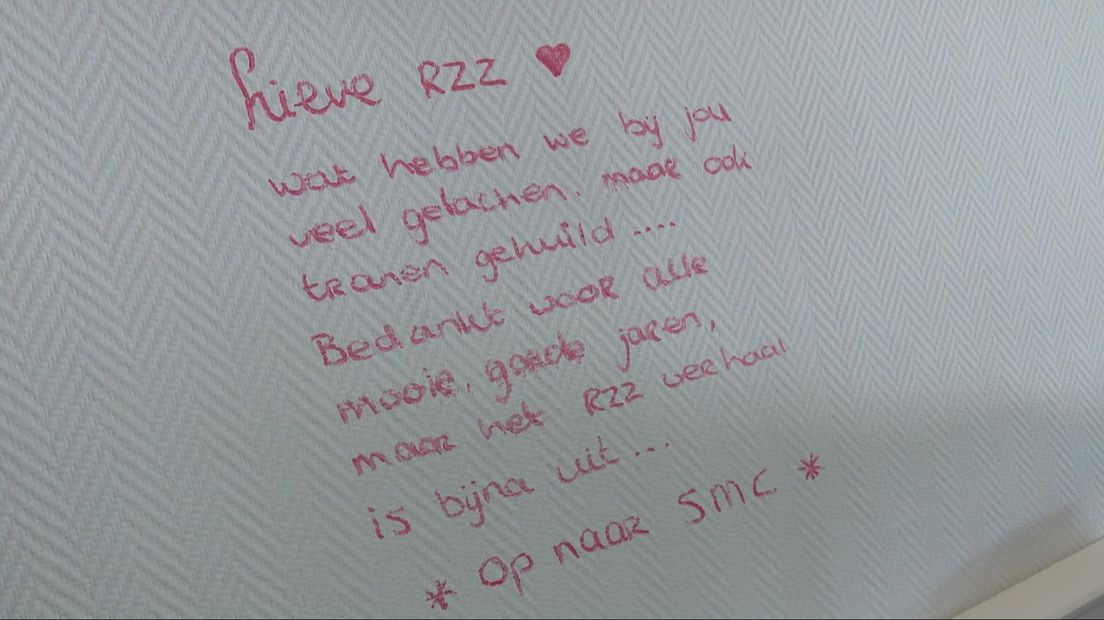 Lieve RZZ ♥
wat hebben we bij jou
veel gelachen, maar ook
tranen gehuild ....
Bedankt voor alle
mooie, goede jaren,
maar het RZZ verhaal
is bijna uit ...
* Op naar SMC *